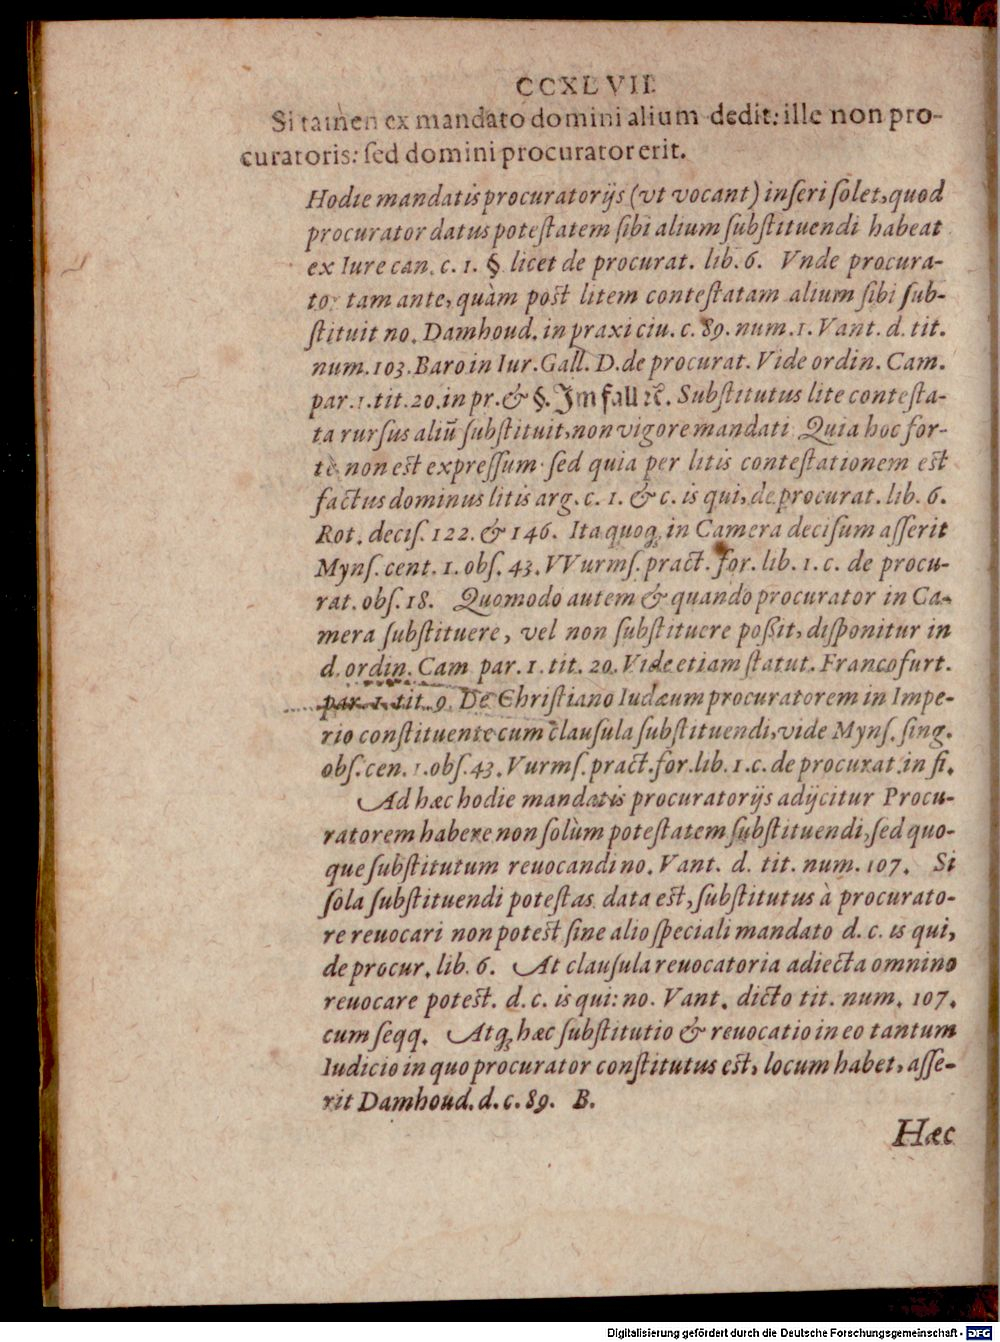 CCXLVII.
Si tamen ex mandato domini alium dedit: ille non pro-
curatoris: ſed domini procurator erit.
Hodie mandatis procuratorijs (vt vocant) inſeri ſolet, quod
procurator datus poteſtatem ſibi alium ſubſtituendi habeat
ex Iure can. c. 1. §. licet de procurat. lib. 6. Vnde procura-
tor tam ante, quàm poſt litem conteſtatam alium ſibi ſub-
ſtituit no. Damhoud. in praxi ciu. c. 89. num. 1. Vant. d. tit.
num. 103. Baro in Iur. Gall. D. de procurat. Vide ordin. Cam.
par. 1. tit. 20. in pr. & §. Im fall ꝛc. Subſtitutus lite conteſta-
ta rurſus aliū ſubſtituit, non vigore mandati Quia hoc for-
tè non eſt expreſſum ſed quia per litis conteſtationem eſt
factus dominus litis arg. c. 1. & c. is qui, de procurat. lib. 6.
Rot. deciſ. 122. & 146. Ita quoq; in Camera deciſum aſſerit
Mynſ. cent. 1. obſ. 43. VVurmſ. pract. for. lib. 1. c. de procu-
rat. obſ. 18. Quomodo autem & quando procurator in Ca-
mera ſubſtituere, vel non ſubſtituere poßit, diſponitur in
d. ordin. Cam par. 1. tit. 20. Vide etiam ſtatut. Francofurt.
par. 1. tit. 9. De Chriſtiano Iudæum procuratorem in Impe-
rio conſtituente cum clauſula ſubſtituendi, vide Mynſ. ſing.
obſ. cen. 1. obſ. 43. Vurmſ. pract. for. lib. 1. c. de procurat. in fi.
Ad hæc hodie mandatis procuratorijs adijcitur Procu-
ratorem habere non ſolùm poteſtatem ſubſtituendi, ſed quo-
que ſubſtitutum reuocandi no. Vant. d. tit. num. 107. Si
ſola ſubſtituendi poteſtas data eſt, ſubſtitutus à procurato-
re reuocari non poteſt ſine alio ſpeciali mandato d. c. is qui,
de procur. lib. 6. At clauſula reuocatoria adiecta omnino
reuocare poteſt. d. c. is qui: no. Vant. dicto tit. num. 107.
cum ſeqq. Atq; hæc ſubſtitutio & reuocatio in eo tantum
Iudicio in quo procurator conſtitutus eſt, locum habet, aſſe-
rit Damhoud. d. c. 89. B.
Hæc
Digitalisierung gefördert durch die Deutsche Forschungsgemeinschaft - DFG